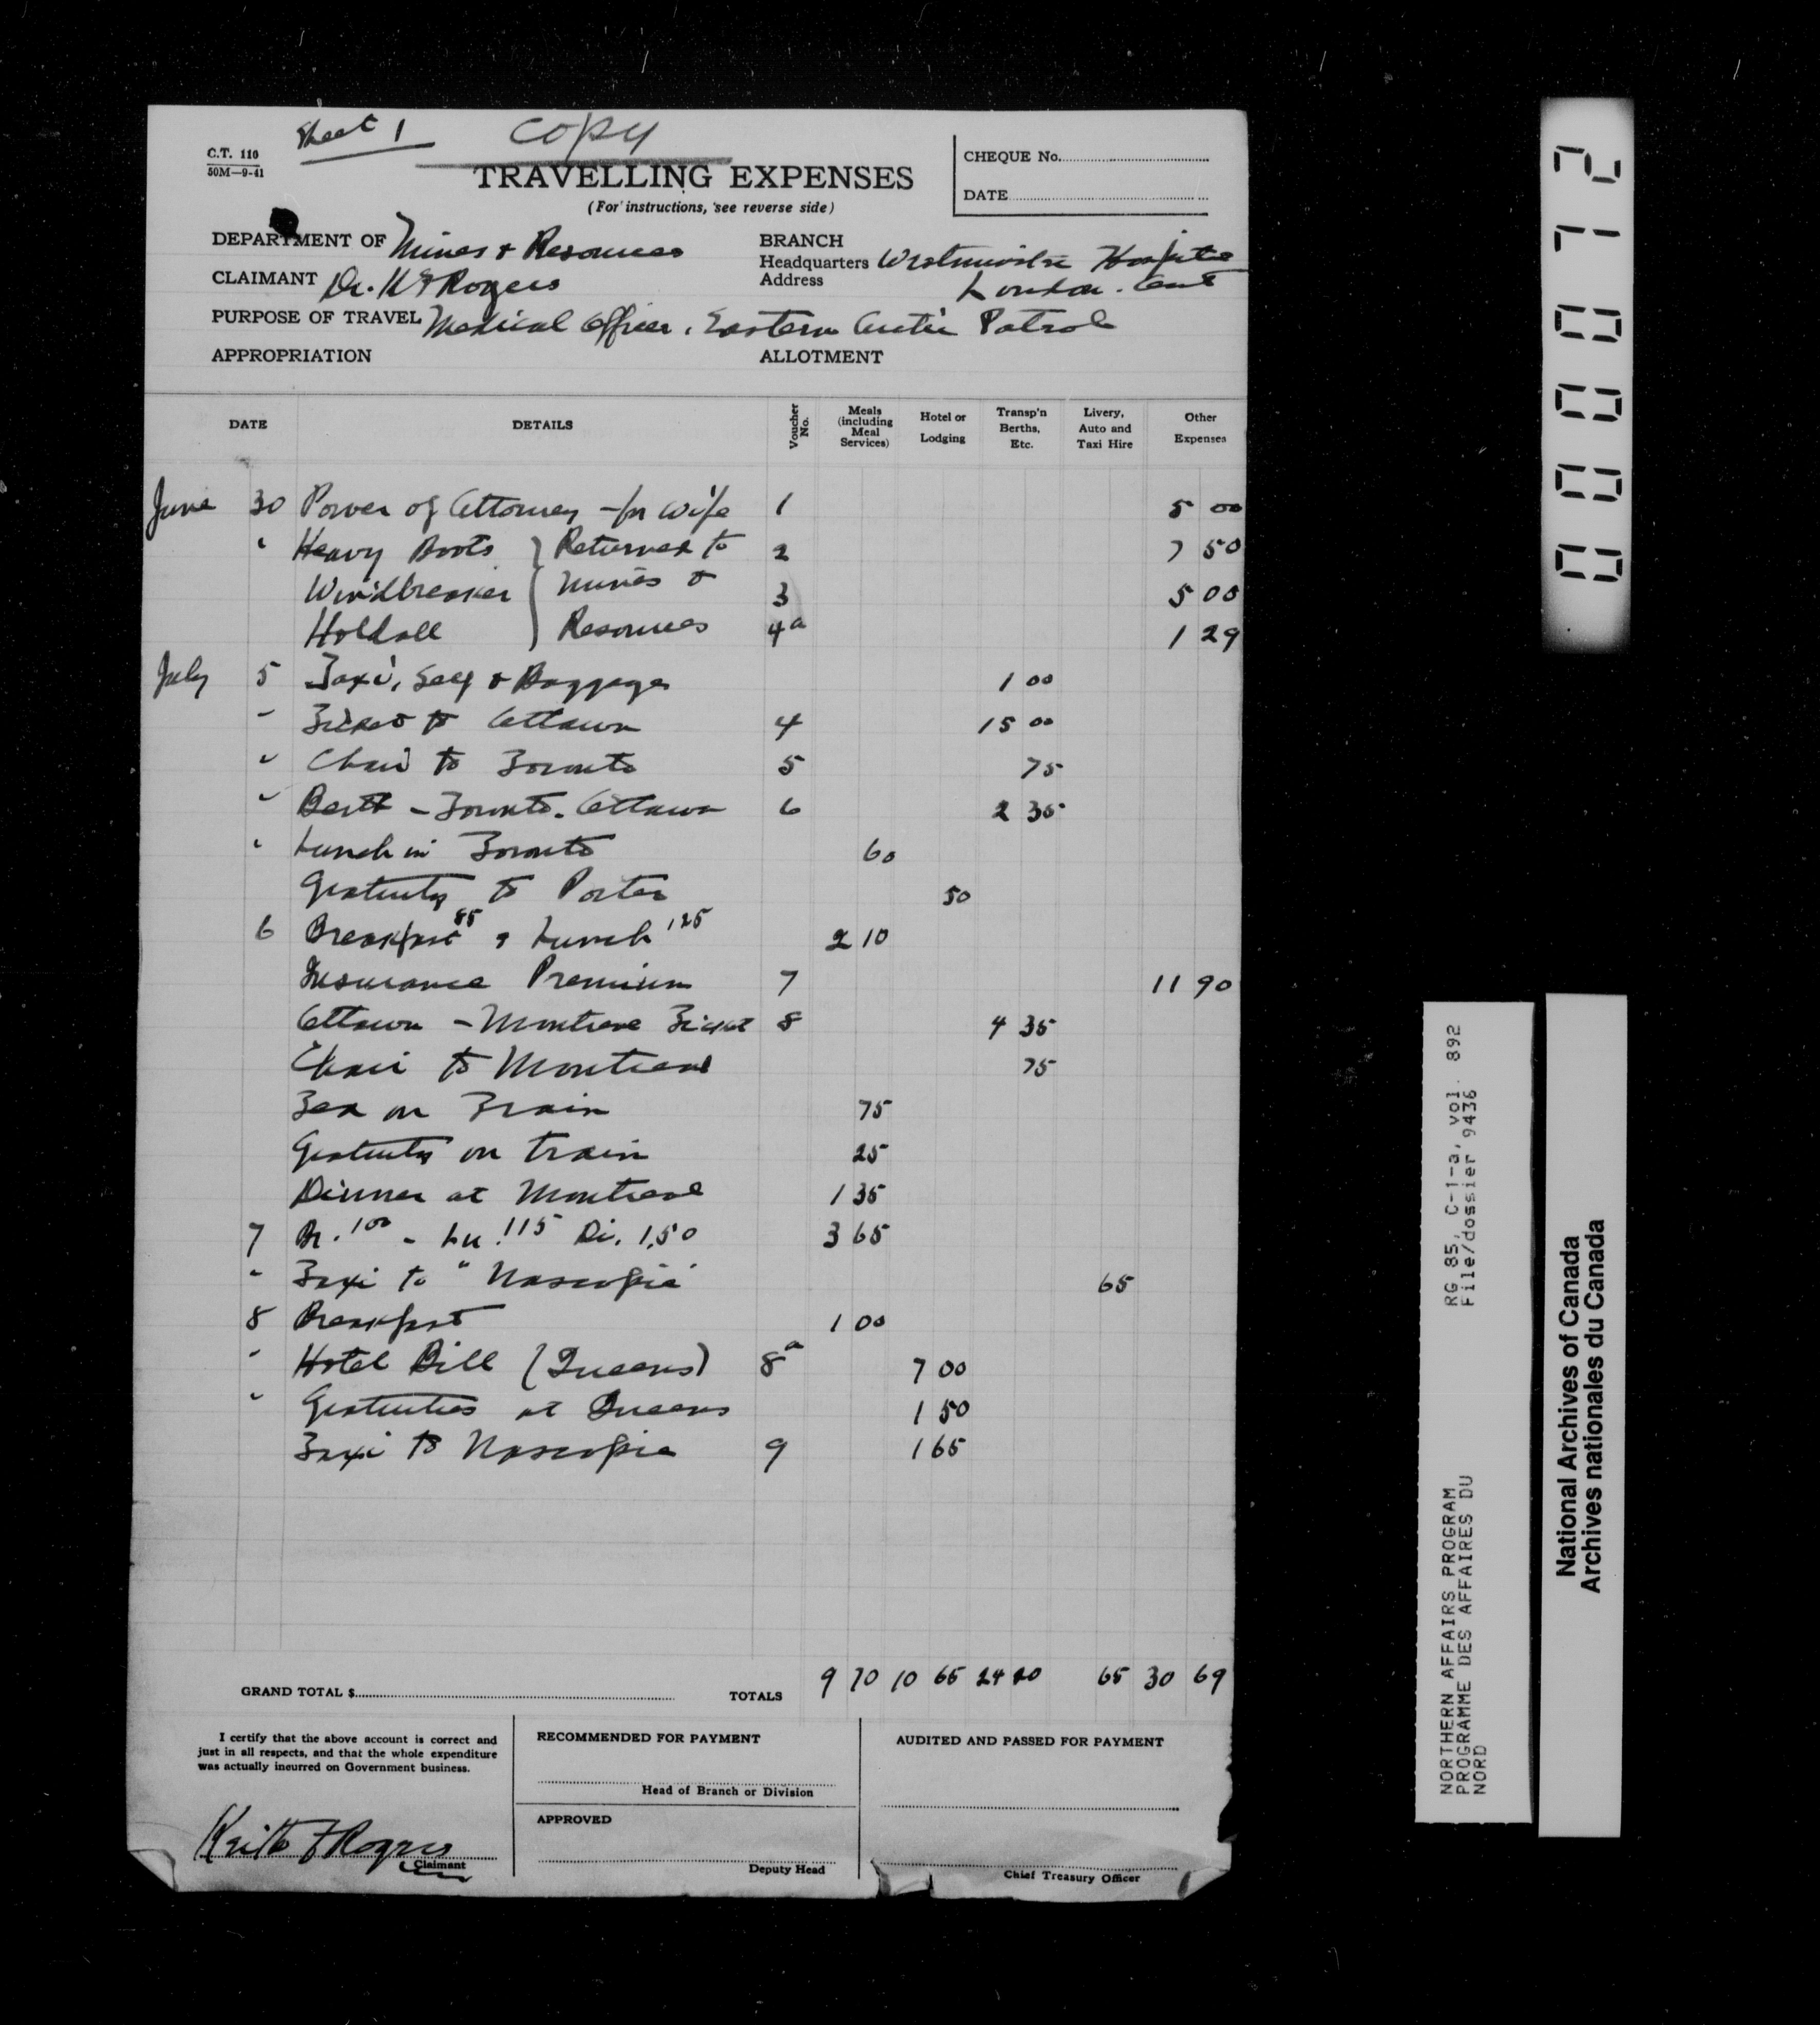 Sheet 1 Copy
C.T. 110
50M—9-41
TRAVELLING EXPENSES
(For instructions, see reverse side)
CHEQUE No.
DATE
DEPARTMENT OF Mines & Resources
BRANCH
Headquarters Westminster Hospital
Address London. Ont
CLAIMANT Dr. K F Rogers
PURPOSE OF TRAVEL Medical Officer, Eastern Arctic Patrol
APPROPRIATION ALLOTMENT
DATE DETAILS Voucher No. Meals (including Meal Services) Hotel or Lodging Transp'n Berths, Etc. Livery, Auto and Taxi Hire Other Expenses
June 30 Power of Attorney - for wife 1 5 00
" Heavy Boots } Returned to 2 7 50
Windbreaker { Mines & 3 5 00
Holdall ) Resources 4a 1 29
July 5 Taxi, Self & Baggage 1 00
" Ticket to Ottawa 4 15 00
" Chair to Toronto 5 75
" Berth - Toronto. Ottawa 6 2 35
" Lunch in Toronto 60
Gratuity to Porter 50
6 Breakfast 85 & Lunch 125 2 10
Insurance Premium 7 11 90
Ottawa - Montreal Ticket 8 4 35
Chair to Montreal 75
Tea on Train 75
Gratuity on train 25
Dinner at Montreal 1 35
7 Br. 1 00 - Lu. 1 15 Di. 1.50 3 65
" Taxi to "Nascopie" 65
8 Breakfast 1 00
" Hotel Bill (Queens) 8a 7 00
" Gratuities at Queens 1 50
Taxi to Nascopie 9 1 65
GRAND TOTAL $ TOTALS 9 70 10 65 24 20 65 30 69
I certify that the above account is correct and
just in all respects, and that the whole expenditure
was actually incurred on Government business.
Keith F Rogers
Claimant
RECOMMENDED FOR PAYMENT
Head of Branch or Division
APPROVED
Deputy Head
AUDITED AND PASSED FOR PAYMENT
Chief Treasury Officer
000712
RG 85, C-1-a, vol. 892
File/dossier 9436
NORTHERN AFFAIRS PROGRAM
PROGRAMME DES AFFAIRES DU
NORD
National Archives of Canada
Archives nationales du Canada